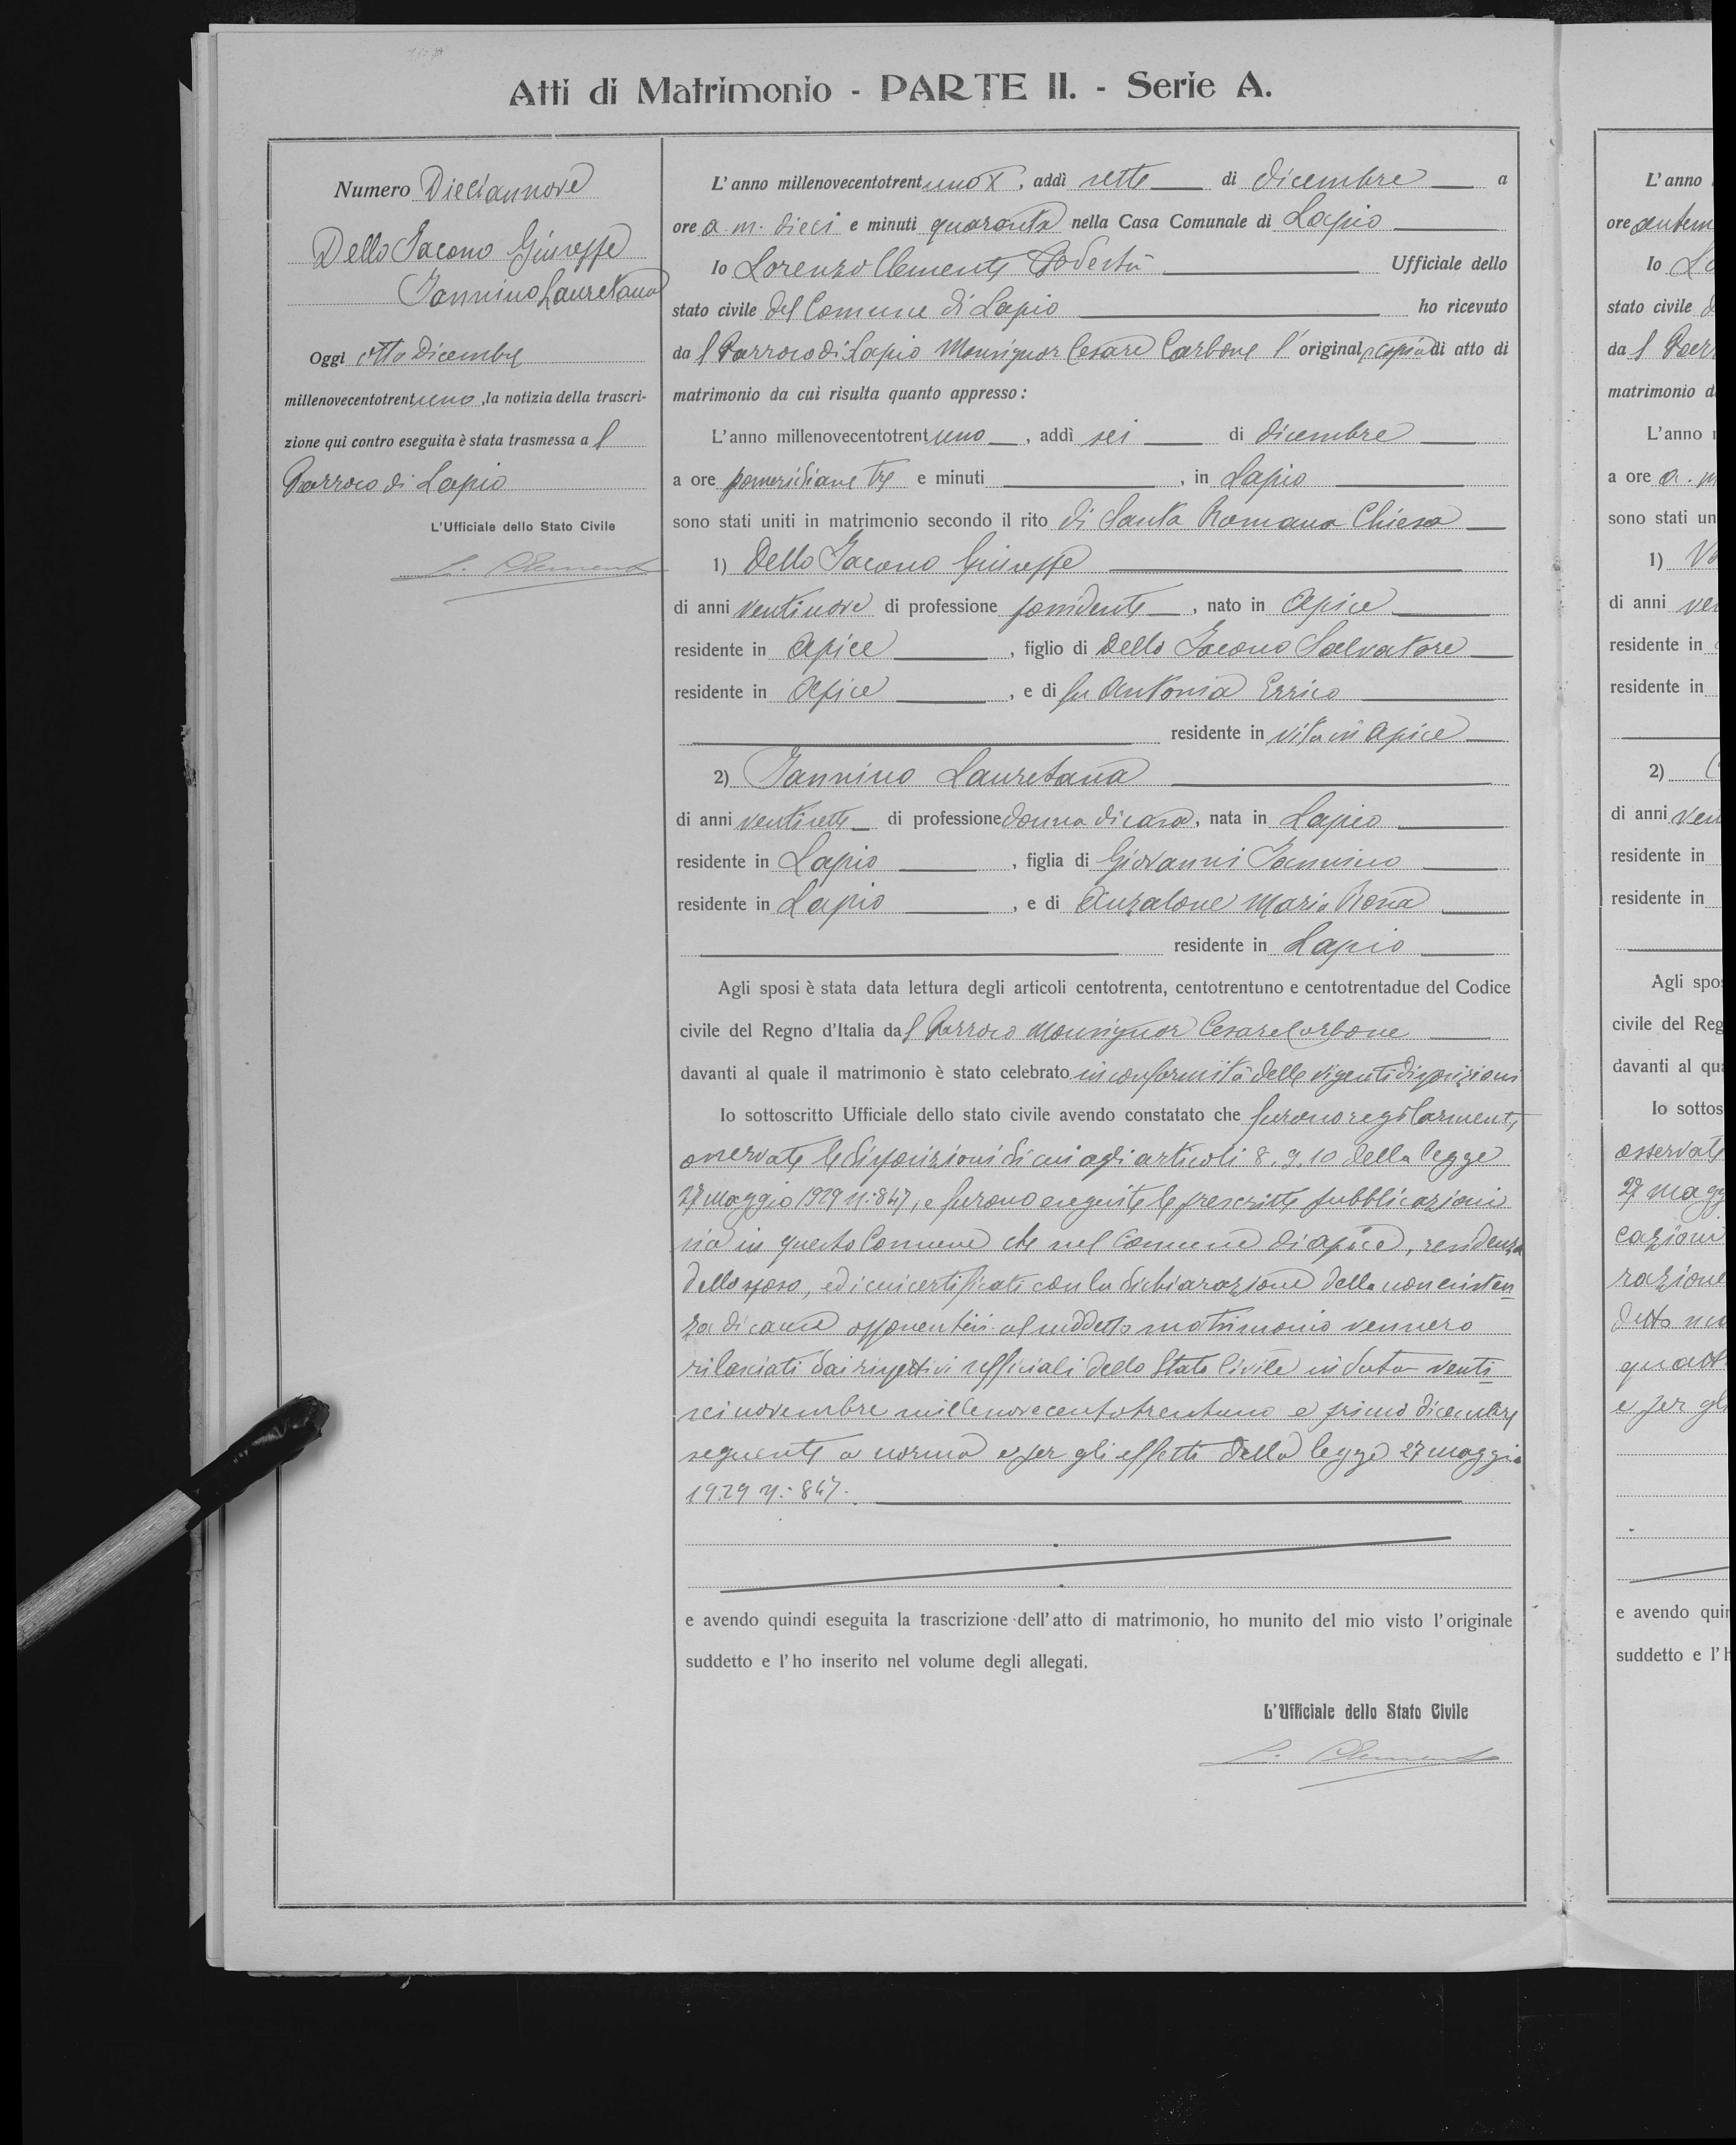 Atti di Matrimonio - PARTE II. - Serie A.
Numero Dieciannove
Dello Iacono Giuseppe
Iannino Lauretana
Oggi otto Dicembre
millenovecentotrentuno, la notizia della trascri-
zione qui contro eseguita è stata trasmessa al
Parroco di Lapio
L'Ufficiale dello Stato Civile
L. Clemente
L'anno millenovecentotrentuno X, addì sette di dicembre a
ore a.m. dieci e minuti quaranta nella Casa Comunale di Lapio
Io Lorenzo Clemente Podestà Ufficiale dello
stato civile del Comune di Lapio ho ricevuto
dal Parroco di Lapio Monsignor Cesare Carbone l'original copia di atto di
matrimonio da cui risulta quanto appresso:
L'anno millenovecentotrentuno, addì sei di dicembre
a ore pomeridiane tre e minuti , in Lapio
sono stati uniti in matrimonio secondo il rito di Santa Romana Chiesa
1) Dello Iacono Giuseppe
di anni ventinove di professione possidente, nato in Apice
residente in Apice, figlio di Dello Iacono Salvatore
residente in Apice, e di fu Antonia Errico
residente in vita in Apice
2) Iannino Lauretana
di anni ventisette di professione donna di casa, nata in Lapio
residente in Lapio, figlia di Giovanni Iannino
residente in Lapio, e di Anzalone Maria Rosa
residente in Lapio
Agli sposi è stata data lettura degli articoli centotrenta, centotrentuno e centotrentadue del Codice
civile del Regno d'Italia dal Parroco Monsignor Cesare Carbone
davanti al quale il matrimonio è stato celebrato in conformità delle vigenti disposizioni
Io sottoscritto Ufficiale dello stato civile avendo constatato che furono regolarmente
osservate le disposizioni di cui agli articoli 8. 9. 10 della legge
27 maggio 1929 n: 847, e furono eseguite le prescritte pubblicazioni
sia in questo Comune che nel Comune di Apice, residenza
dello sposo, ed i cui certificati con la dichiarazione della non esisten
za di cause opponentisi al suddetto matrimonio vennero
rilasciati dai rispettivi ufficiali dello Stato Civile in data venti
sei novembre millenovecentotrentuno e primo dicembre
seguente a norma e per gli effetti della legge 27 maggio
1929 n: 847.
e avendo quindi eseguita la trascrizione dell'atto di matrimonio, ho munito del mio visto l'originale
suddetto e l'ho inserito nel volume degli allegati.
L'Ufficiale dello Stato Civile
L. Clemente
L'anno
ore antem
Io Lo
stato civile d
dal Parr
matrimonio d
L'anno
a ore a. m
sono stati un
1)
di anni ven
residente in
residente in
2)
di anni ven
residente in
residente in
Agli spos
civile del Reg
davanti al qua
Io sottos
osservate
27 magg
cazioni
razione
detto ma
quatt
e per gli
e avendo quin
suddetto e l'h